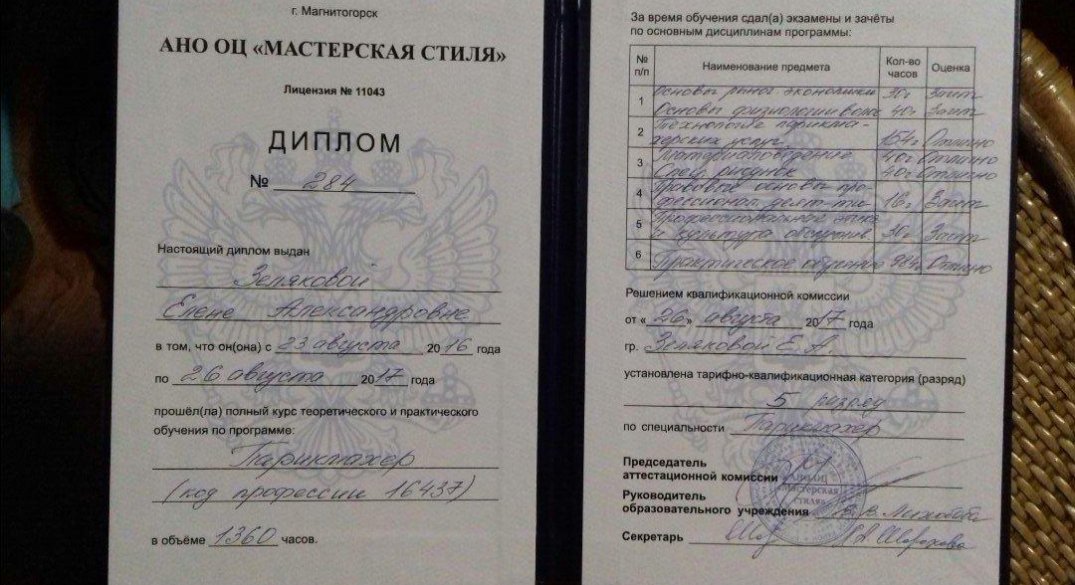 г. Магнитогорск
АНО ОЦ «МАСТЕРСКАЯ СТИЛЯ»
Лицензия № 11043
ДИПЛОМ
№ 284
Настоящий диплом выдан
Зеляковой
Елене Александровне
в том, что он(она) с 23 августа 2016 года
по 26 августа 2017 года
прошёл(ла) полный курс теоретического и практического
обучения по программе:
Парикмахер
(код профессии 16437)
в объёме 1360 часов.
За время обучения сдал(а) экзамены и зачёты
по основным дисциплинам программы:
№ п/п Наименование предмета Кол-во часов Оценка
1 Основы рыноч. экономики 36ч Зачт
Основы физиологии волос 40ч Зачт
2 Технология парикма-
херских услуг Отлично
3 Материаловедение 40ч Отлично
Спец рисунок 40ч Отлично
4 Правовые основы про-
фессионал. 16ч Зачт
5 Профессиональная этика
и культура общения 36ч Зачт
6 Практическое обучение 984ч Отлично
Решением квалификационной комиссии
от «26» августа 2017 года
гр. Зеляковой Е. А.
установлена тарифно-квалификационная категория (разряд)
5 разряд
по специальности Парикмахер
Председатель
аттестационной комиссии
Руководитель
образовательного учреждения
Секретарь
АНО ОЦ
«Мастерская
стиля»